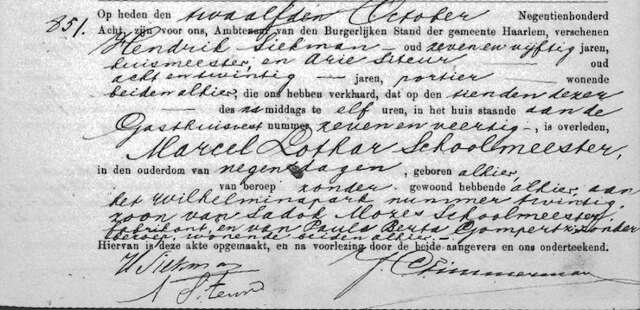 851. Op heden den twaalfden October Negentienhonderd
Acht, zijn voor ons, Ambtenaar van den Burgerlijken Stand der gemeente Haarlem, verschenen
Hendrik Siekman – oud zeven en vijftig jaren,
huismeester, en Arie Steur, oud
acht en twintig – jaren, portier – wonende
beiden alhier, die ons hebben verklaard, dat op den tienden dezer
des na middags te elf uren, in het huis staande aan de
Gasthuisvest nummer zeven en veertig –, is overleden,
Marcel Lothar Schoolmeester,
in den ouderdom van negen dagen, geboren alhier,
van beroep zonder gewoond hebbende alhier, aan
het Wilhelminapark nummer twintig,
zoon van Sadok Mozes Schoolmeester,
fabrikant, en van Paula Berta Gompertz, zonder
beroep, wonende beiden alhier. –
Hiervan is deze akte opgemaakt, en na voorlezing door de beide aangevers en ons onderteekend.
H Siekman
A Steur